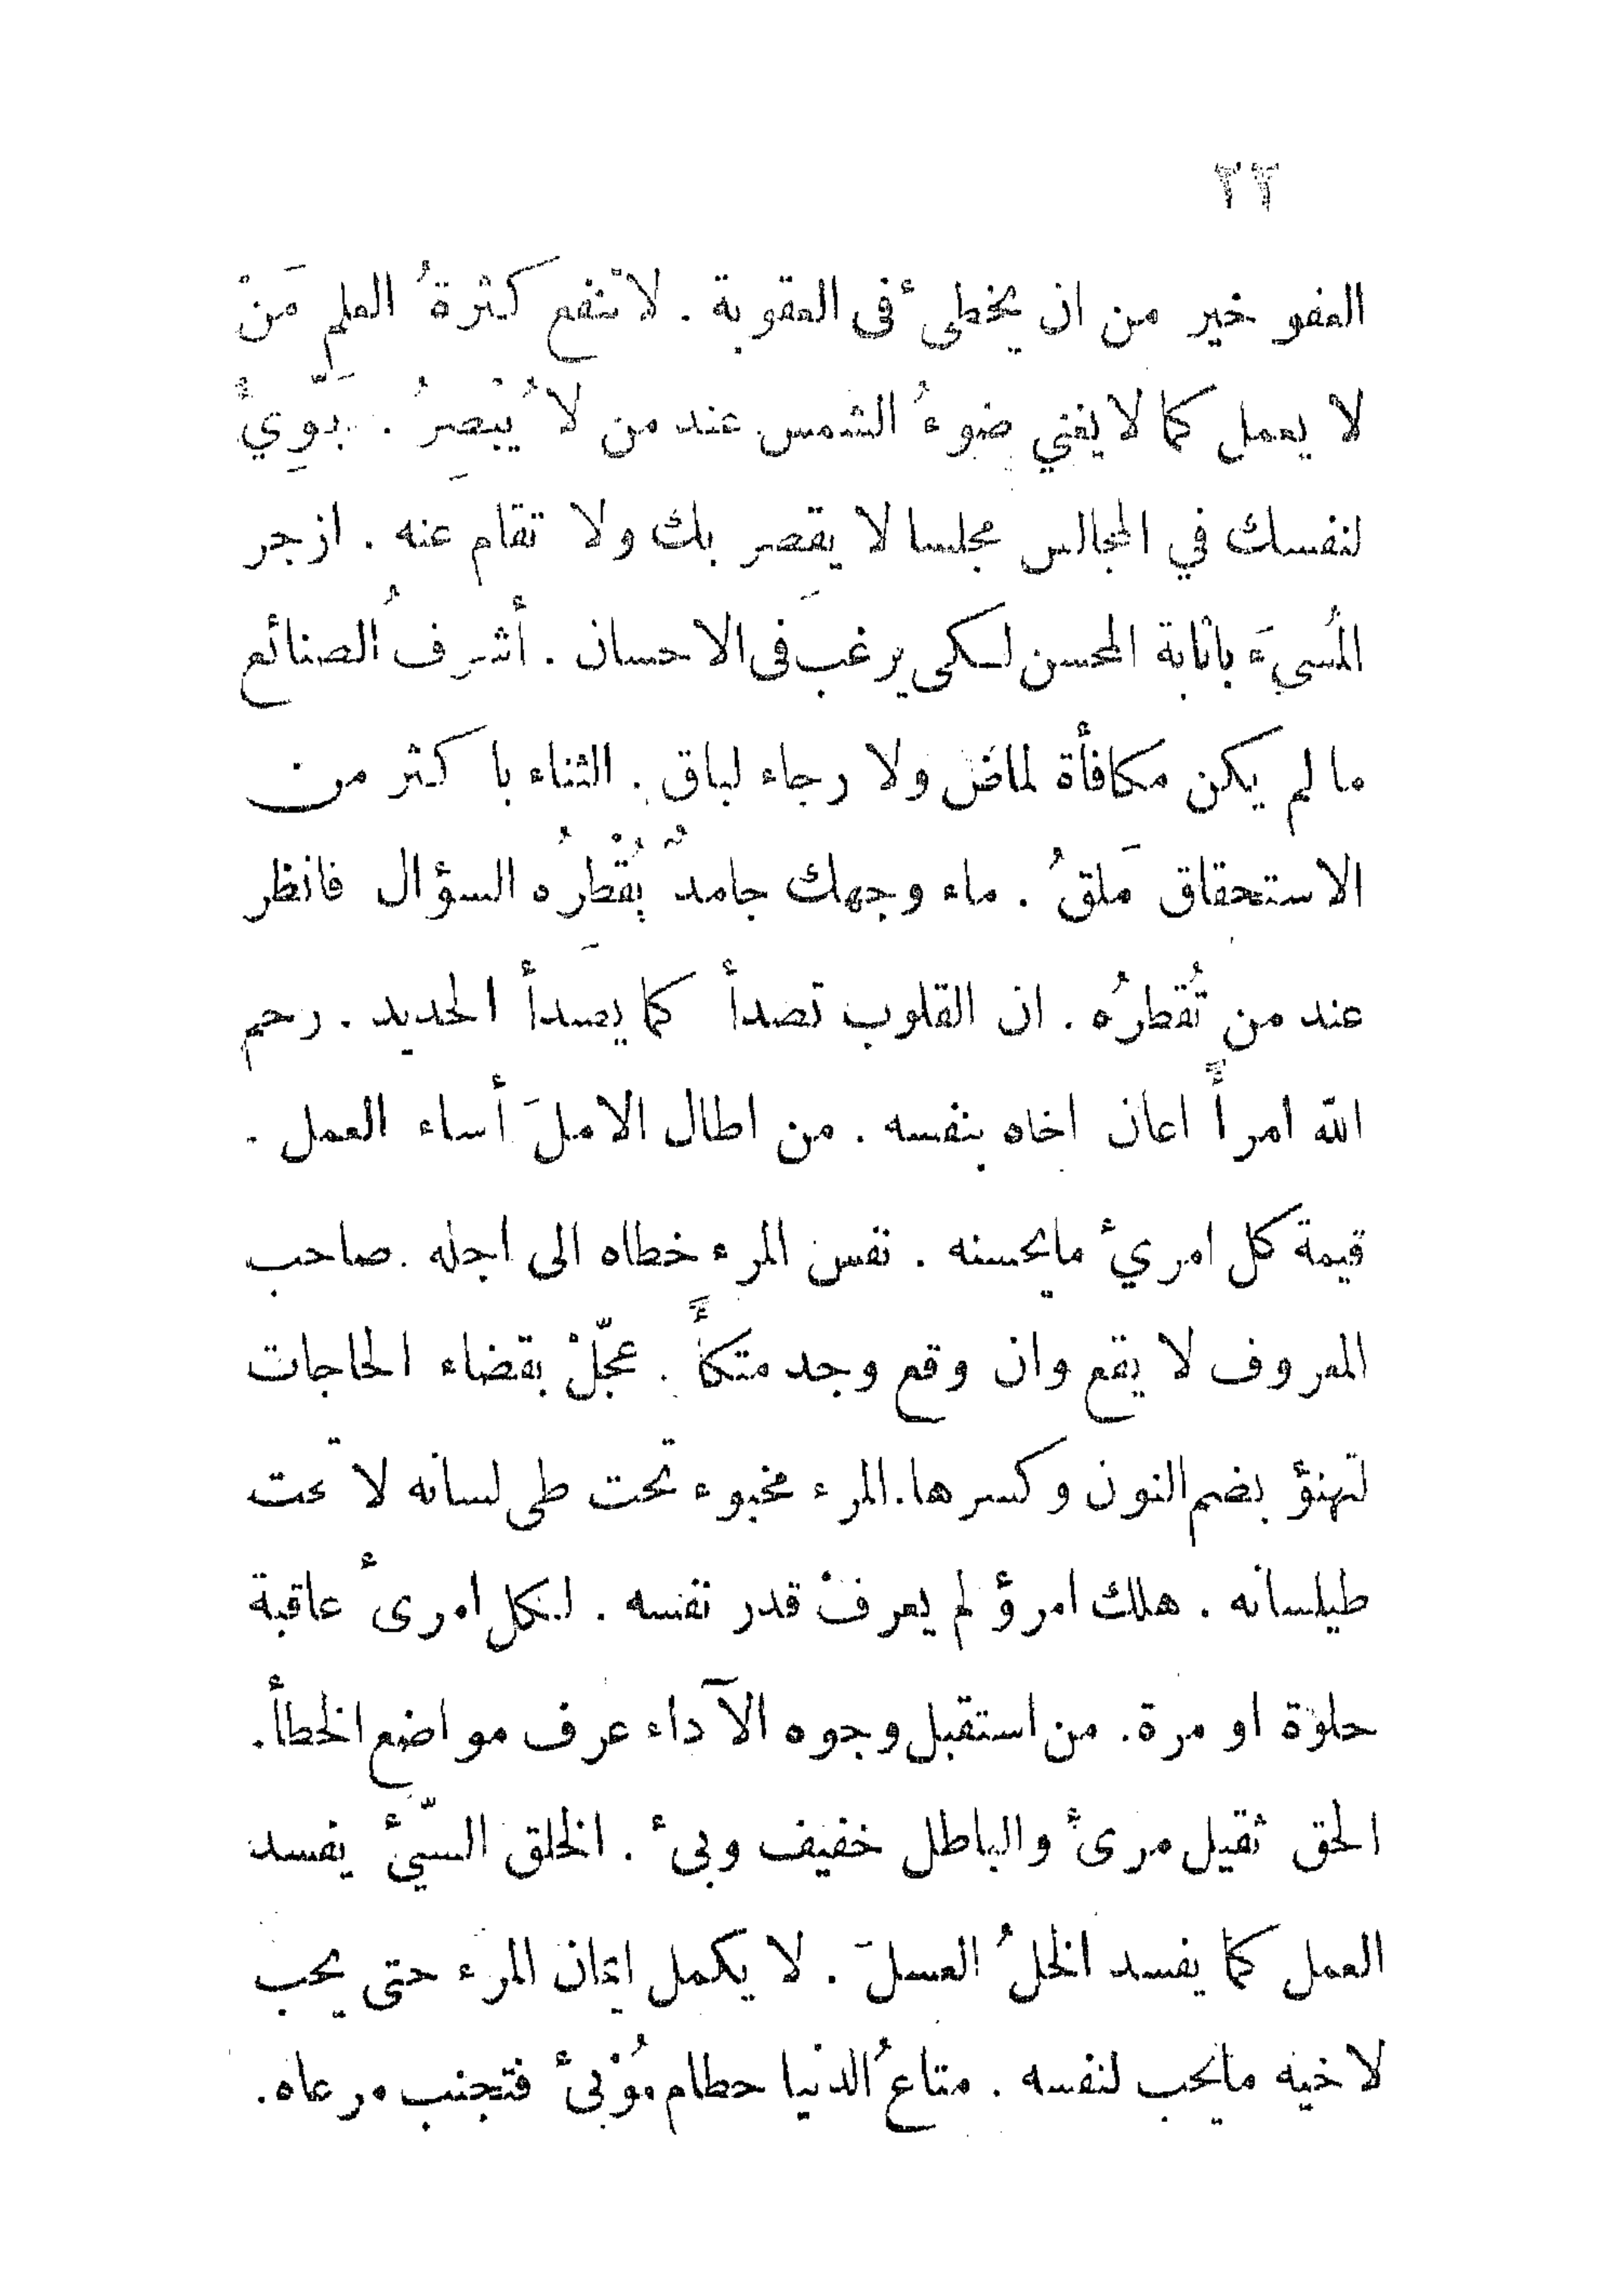 ٢٢
العفو خير من ان يخطىٔ فى العقوبة . لا تنفع كثرةُ العلمِ مَنْ
لا يعمل كما لا يغني ضوءُ الشمس عند من لا يُبْصِرُ . بَوِّئْ
لنفسك في المجالس مجلسا لا يقصِر بك ولا تقام عنه . ازجر
المُسيءَ باثابة المحسن لكى يرغبَ فى الاحسان . أشرفُ الصنائع
ما لم يكن مكافأة لماض ولا رجاء لباق . الثناء باكثر من
الاستحقاق مَلقُ . ماء وجهك جامدٌ يُقْطِرُه السؤال فانظر
عند من تُقطرُه . ان القلوب تصدأ كما يصدأ الحديد . رحم
الله امرأً اعان اخاه بنفسه . من اطال الاملَ أساء العمل .
قيمة كل امرئ مايحسنه . نفس المرء خطاه الى اجله . صاحب
المعروف لا يقع وان وقع وجد متكأً . عجّلْ بقضاء الحاجات
لتهنؤ بضم النون وكسرها . المرء مخبوء تحت طى لسانه لا تحت
طيلسانه . هلك امرؤ لم يعرفْ قدر نفسه . لكل امرىٔ عاقبة
حلوة او مرة . من استقبل وجوه الآداء عرف مواضع الخطأ .
الحق ثقيل مرىٔ والباطل خفيف وبىٔ . الخلق السّئ يفسد
العمل كما يفسد الخلُ العسلَ . لا يكمل ايمان المرء حتى يحب
لاخيه مايحب لنفسه . متاعُ الدنيا حطام مُوْبىٔ فتجنب مرعاه .